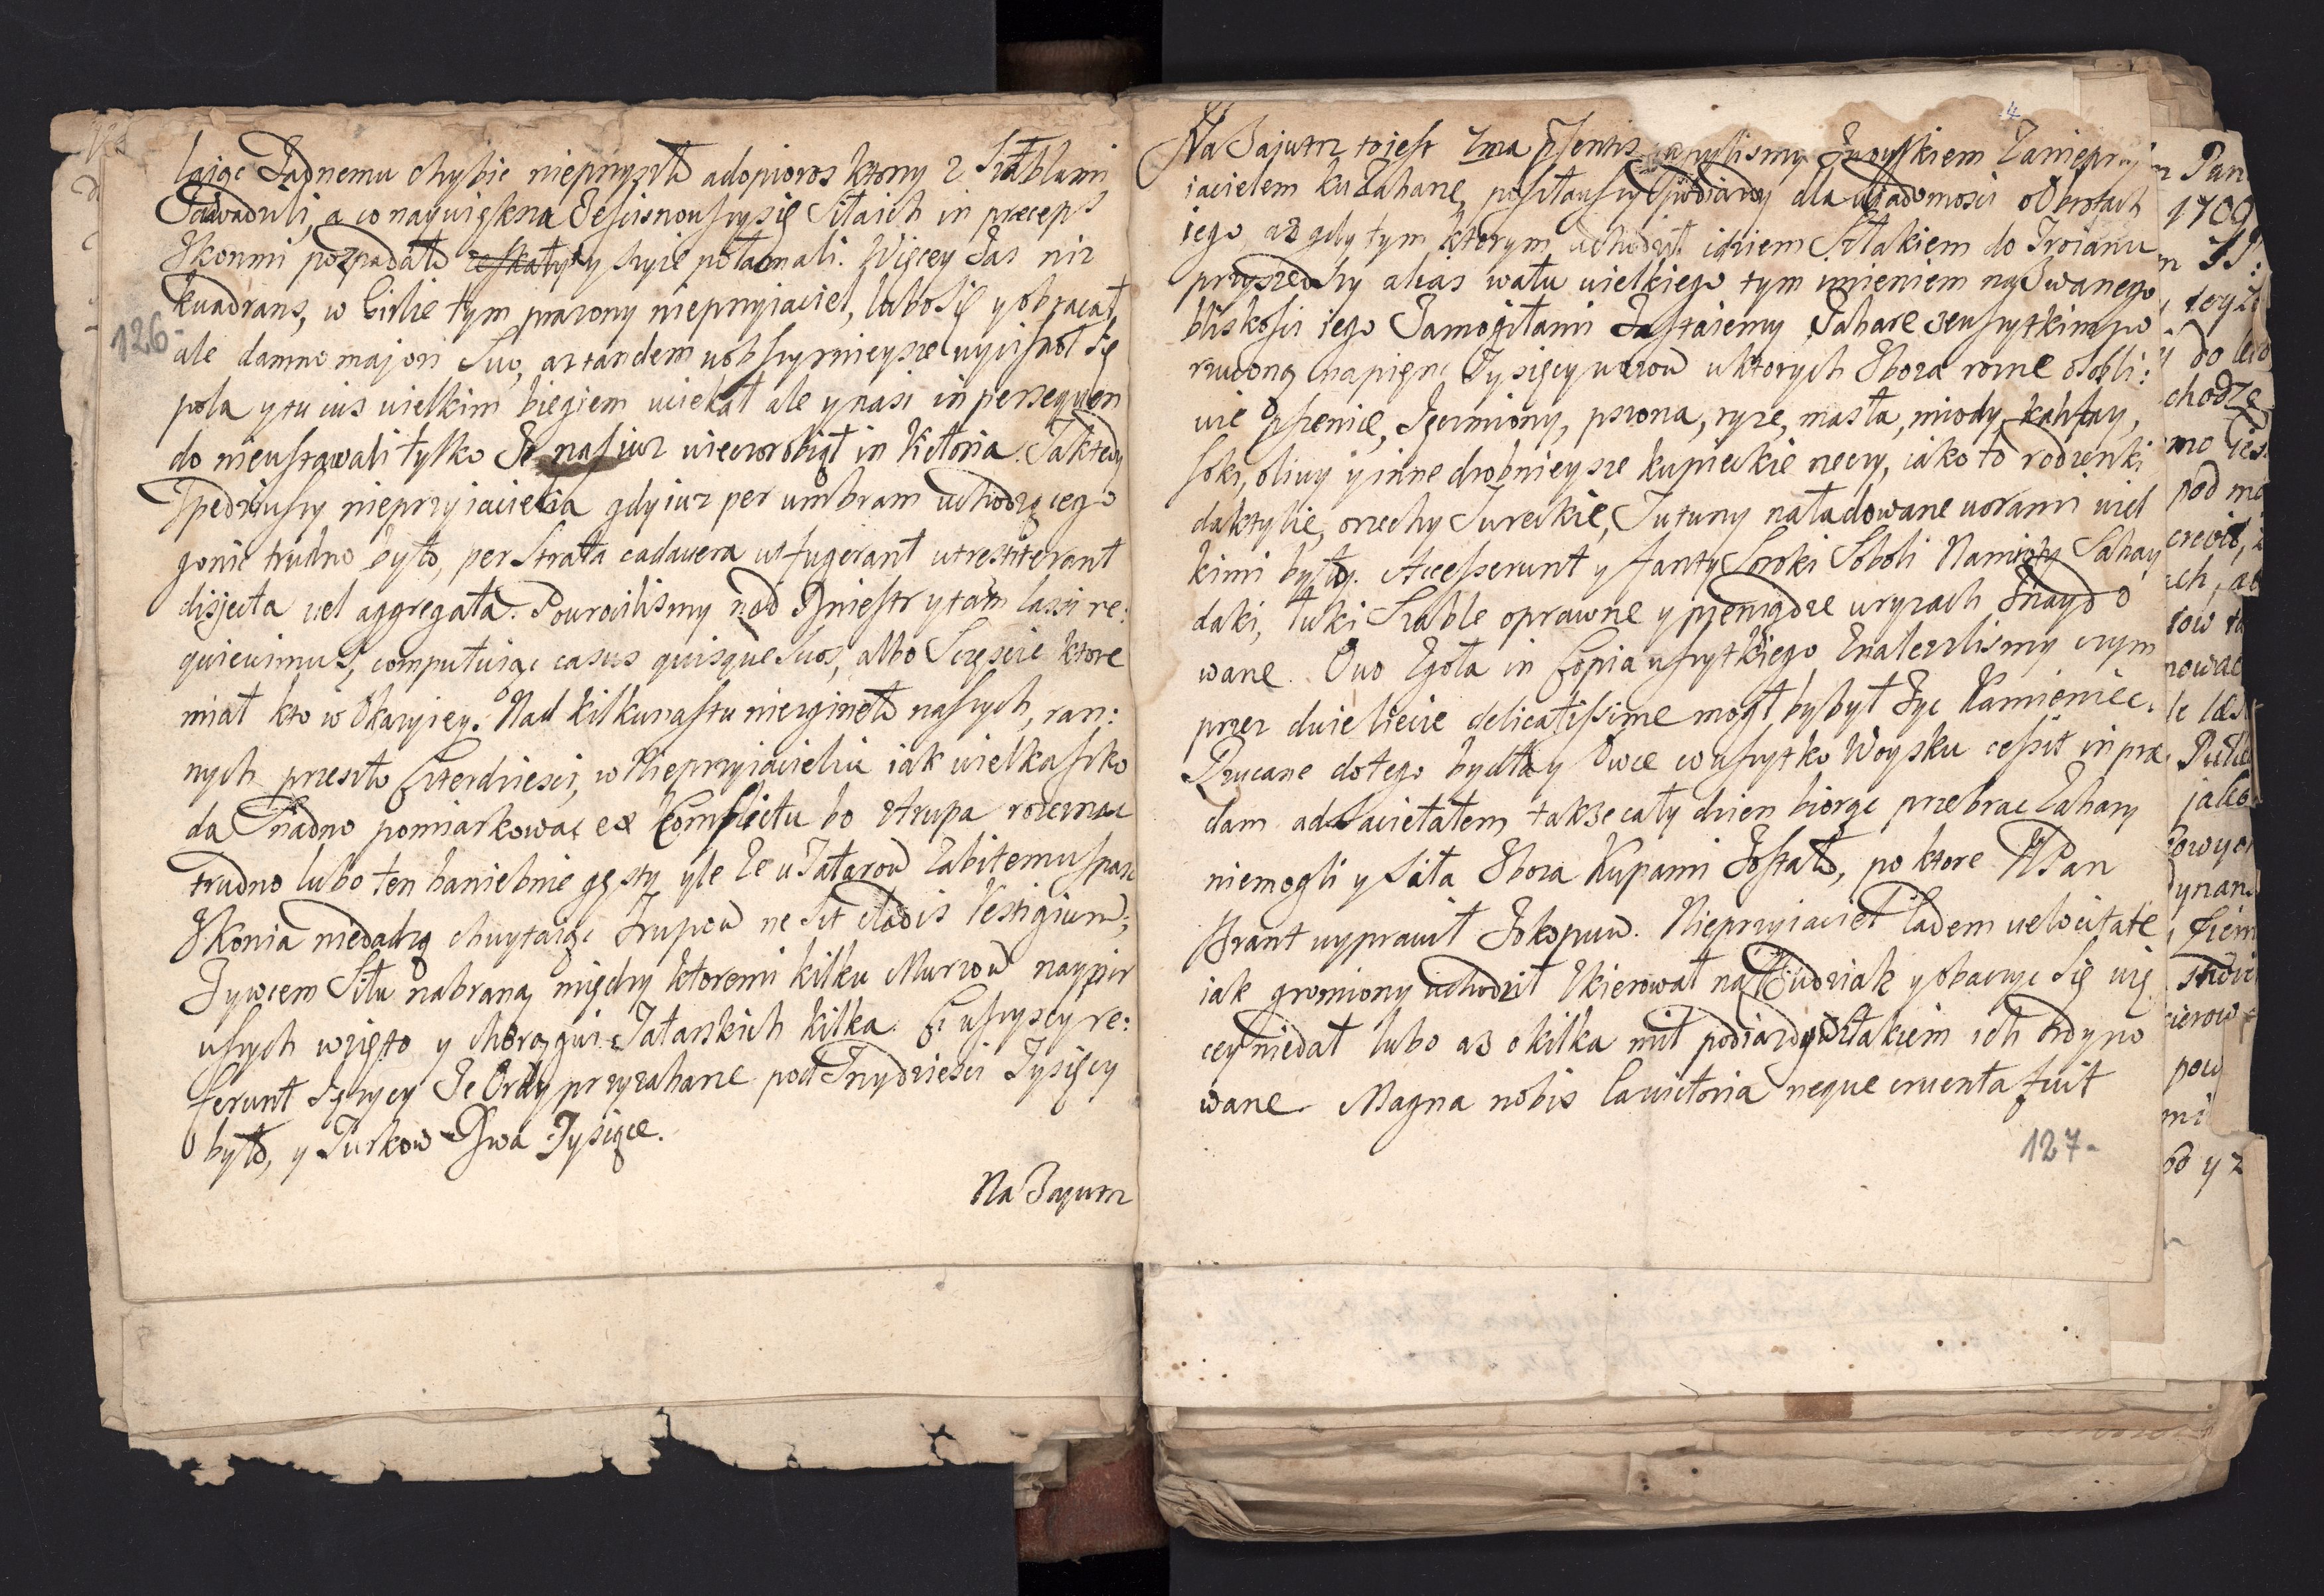 126.
laiąc Zadnemu chybic nieprzyszło adopioros ktorzy z Szablami
Zawadzili, a co naywiększa Zescisnowszysię Siłaich in præceps
Zkonmi pospadało zeskały y szyie połamali. Więcey Zas niz
kwadrans, w Cirlie tym prazony nieprzyiaciel, lubosię y obracał,
ale damno majori Suo, aztandem wobszyrnieysze wycisnoł Się
pola y tu ius wielkim biegiem uciekał ale y nasi in persequen
do nieustawali tylko Ze nas iuz wieczorobiął in Victoria. Taktedy
Spedziwszy nieprzyiaciela gdyiuz per umbram uchodzącego
gonic trudno było, per Strata cadavera ut fugerant ut restiterant
disjecta vel aggregata. Powrocilismy nad Dniestr y tam lassi re:
quievimus, computuiąc casus quisque Suos, albo Szczęscie ktore
miał kto w Okazyiey. Nad kilkunastu niezgineło naszych, ran:
nych przeszło Czterdziesci, w Nieprzyiacielu iak wielka szko
da Snadno pomiarkować ex Conflictu bo ztrupa rozeznac
trudno lubo ten haniebnie gęsty yle Ze u Tatarow Zabitemu spasc
Zkonia niedadzą chwytaiąc Trupow ne sit cladis Vestigium;
Zywcem Siłu nabrano, między ktoremi kilku Murzow naypier
wszych wzięto y chorągwi Tatarskich kilka. Ci wszyscy re:
ferunt Języcy Ze Ordy przyzahane pod Trzydziesci Tysięcy
było, y Turkow Dwa Tysiące.
Na Zajutrz
4
Na Zajutrz toiest 7ma Zwoyskiem Zanieprzy
iacielem ku Zahane, posławszy podiazdy dla wiadomosci o Obrotach
iego, az gdy tym ktorym uchodził idziem Szlakiem do Troianu
przyszedszy alias wału wielkiego tym imieniem nazwanego
bliskosci iego Zamogiłami Zastaiemy Zahare zewszytkim po
rzuconą napięnc Tysięcy wozow wktorych Zboza rozne osobli:
wie Pszenice, Jęczmiony, prosna, ryze, masła, miody, kahfay,
soki, oliwy y inne drobnieysze kupieckie rzeczy, iako to rodzenki
daktylie, orzechy Tureckie, Tutuny naładowane worami wiel
kimi były. Accesserunt y fanty Soroki Soboli Namioty Sahay
daki, łuki Szable oprawne y pieniądze wryzach Znaydo
wane. Ovo Zgoła in Copia wszytkiego Znalezlismy czym
przez dwie liecie delicatissime mogł bybył Zyc Kamieniec.
Rzucane dotego bydła y Owce co wszytko Woysku cessit in præ
dam ad Sacietatem takze cały dzien biorąc przebrac Zahary
niemogli y Siła Zboza Kupami Zostało, po ktore JPan
Brant wyprawił Zokopuw. Nieprzyiaciel Eadem velocitate
iak gromiony uchodził Skierował na Budziak y obaczyc Się wię
cey niedał lubo az o kilka mil podiazdy Szlakiem ich ordyno
wane. Magna nobis Ea victoria neque cruenta fuit
127.